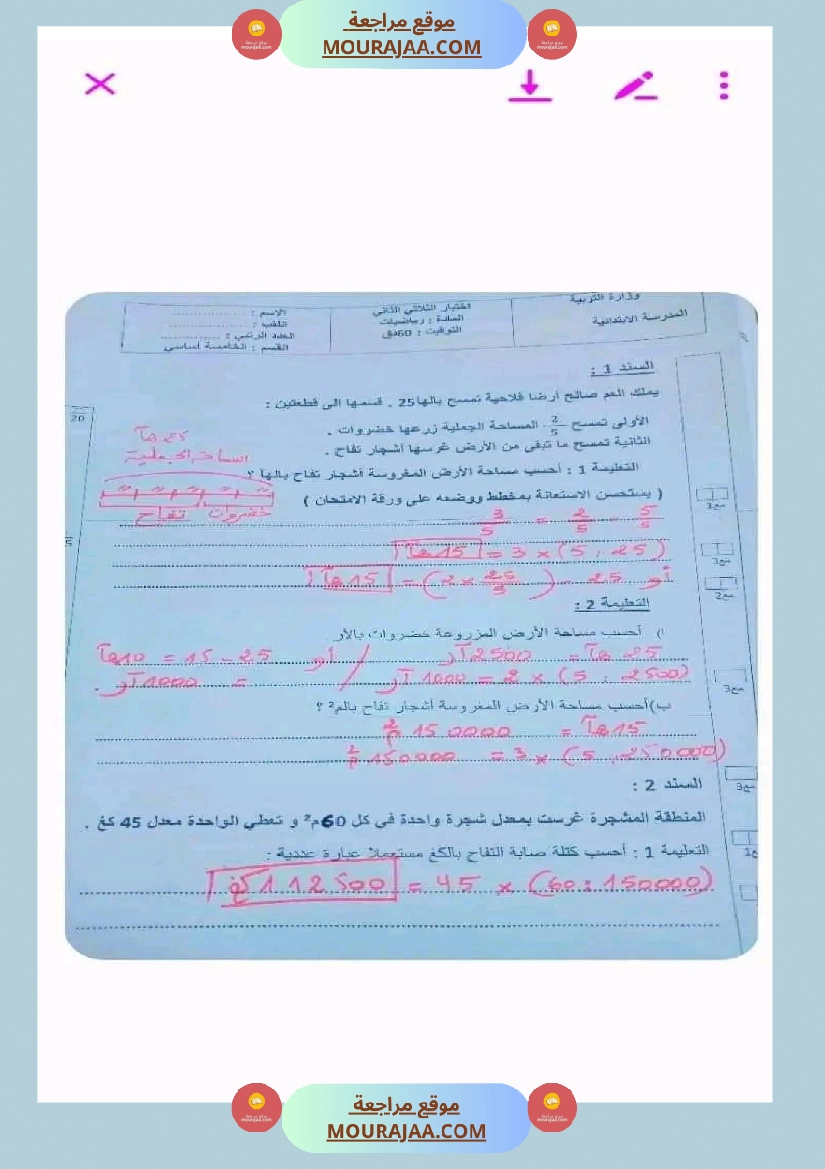 موقع مراجعة
MOURAJAA.COM
وزارة التربية
المدرسة الابتدائية
اختبار الثلاثي الثاني
المادة : رياضيات
التوقيت : 60دق
الاسم : ................
اللقب : ................
العدد الرتبي : ................
القسم : الخامسة أساسي
20
السند 1 :
يملك العم صالح أرضا فلاحية تمسح بالها25 . قسمها الى قطعتين :
الأولى تمسح 2/5 المساحة الجملية زرعها خضروات .
الثانية تمسح ما تبقى من الأرض غرسها أشجار تفاح .
التعليمة 1 : أحسب مساحة الأرض المغروسة أشجار تفاح بالها ؟
( يستحسن الاستعانة بمخطط ووضعه على ورقة الامتحان )
25 هآ
المساحة الجملية
خضروات تفاح
5/5 - 2/5 = 3/5
(25 : 5) × 3 = 15 هآ
أو 25 - (25/5 × 2) = 15 هآ
مع3
مع3
مع2
التعليمة 2 :
أ) أحسب مساحة الأرض المزروعة خضروات بالآر
25 هآ = 2500 آر / أو 25 - 15 = 10 هآ
(2500 : 5) × 2 = 1000 آر / = 1000 آر
مع3
ب)أحسب مساحة الأرض المغروسة أشجار تفاح بالم² ؟
15 هآ = 150000 م²
(250000 : 5) × 3 = 150000 م²
مع3
السند 2 :
المنطقة المشجرة غرست بمعدل شجرة واحدة في كل 60م² و تعطي الواحدة معدل 45 كغ .
التعليمة 1 : أحسب كتلة صابة التفاح بالكغ مستعملا عبارة عددية :
(150000 : 60) × 45 = 112500 كغ
موقع مراجعة
MOURAJAA.COM